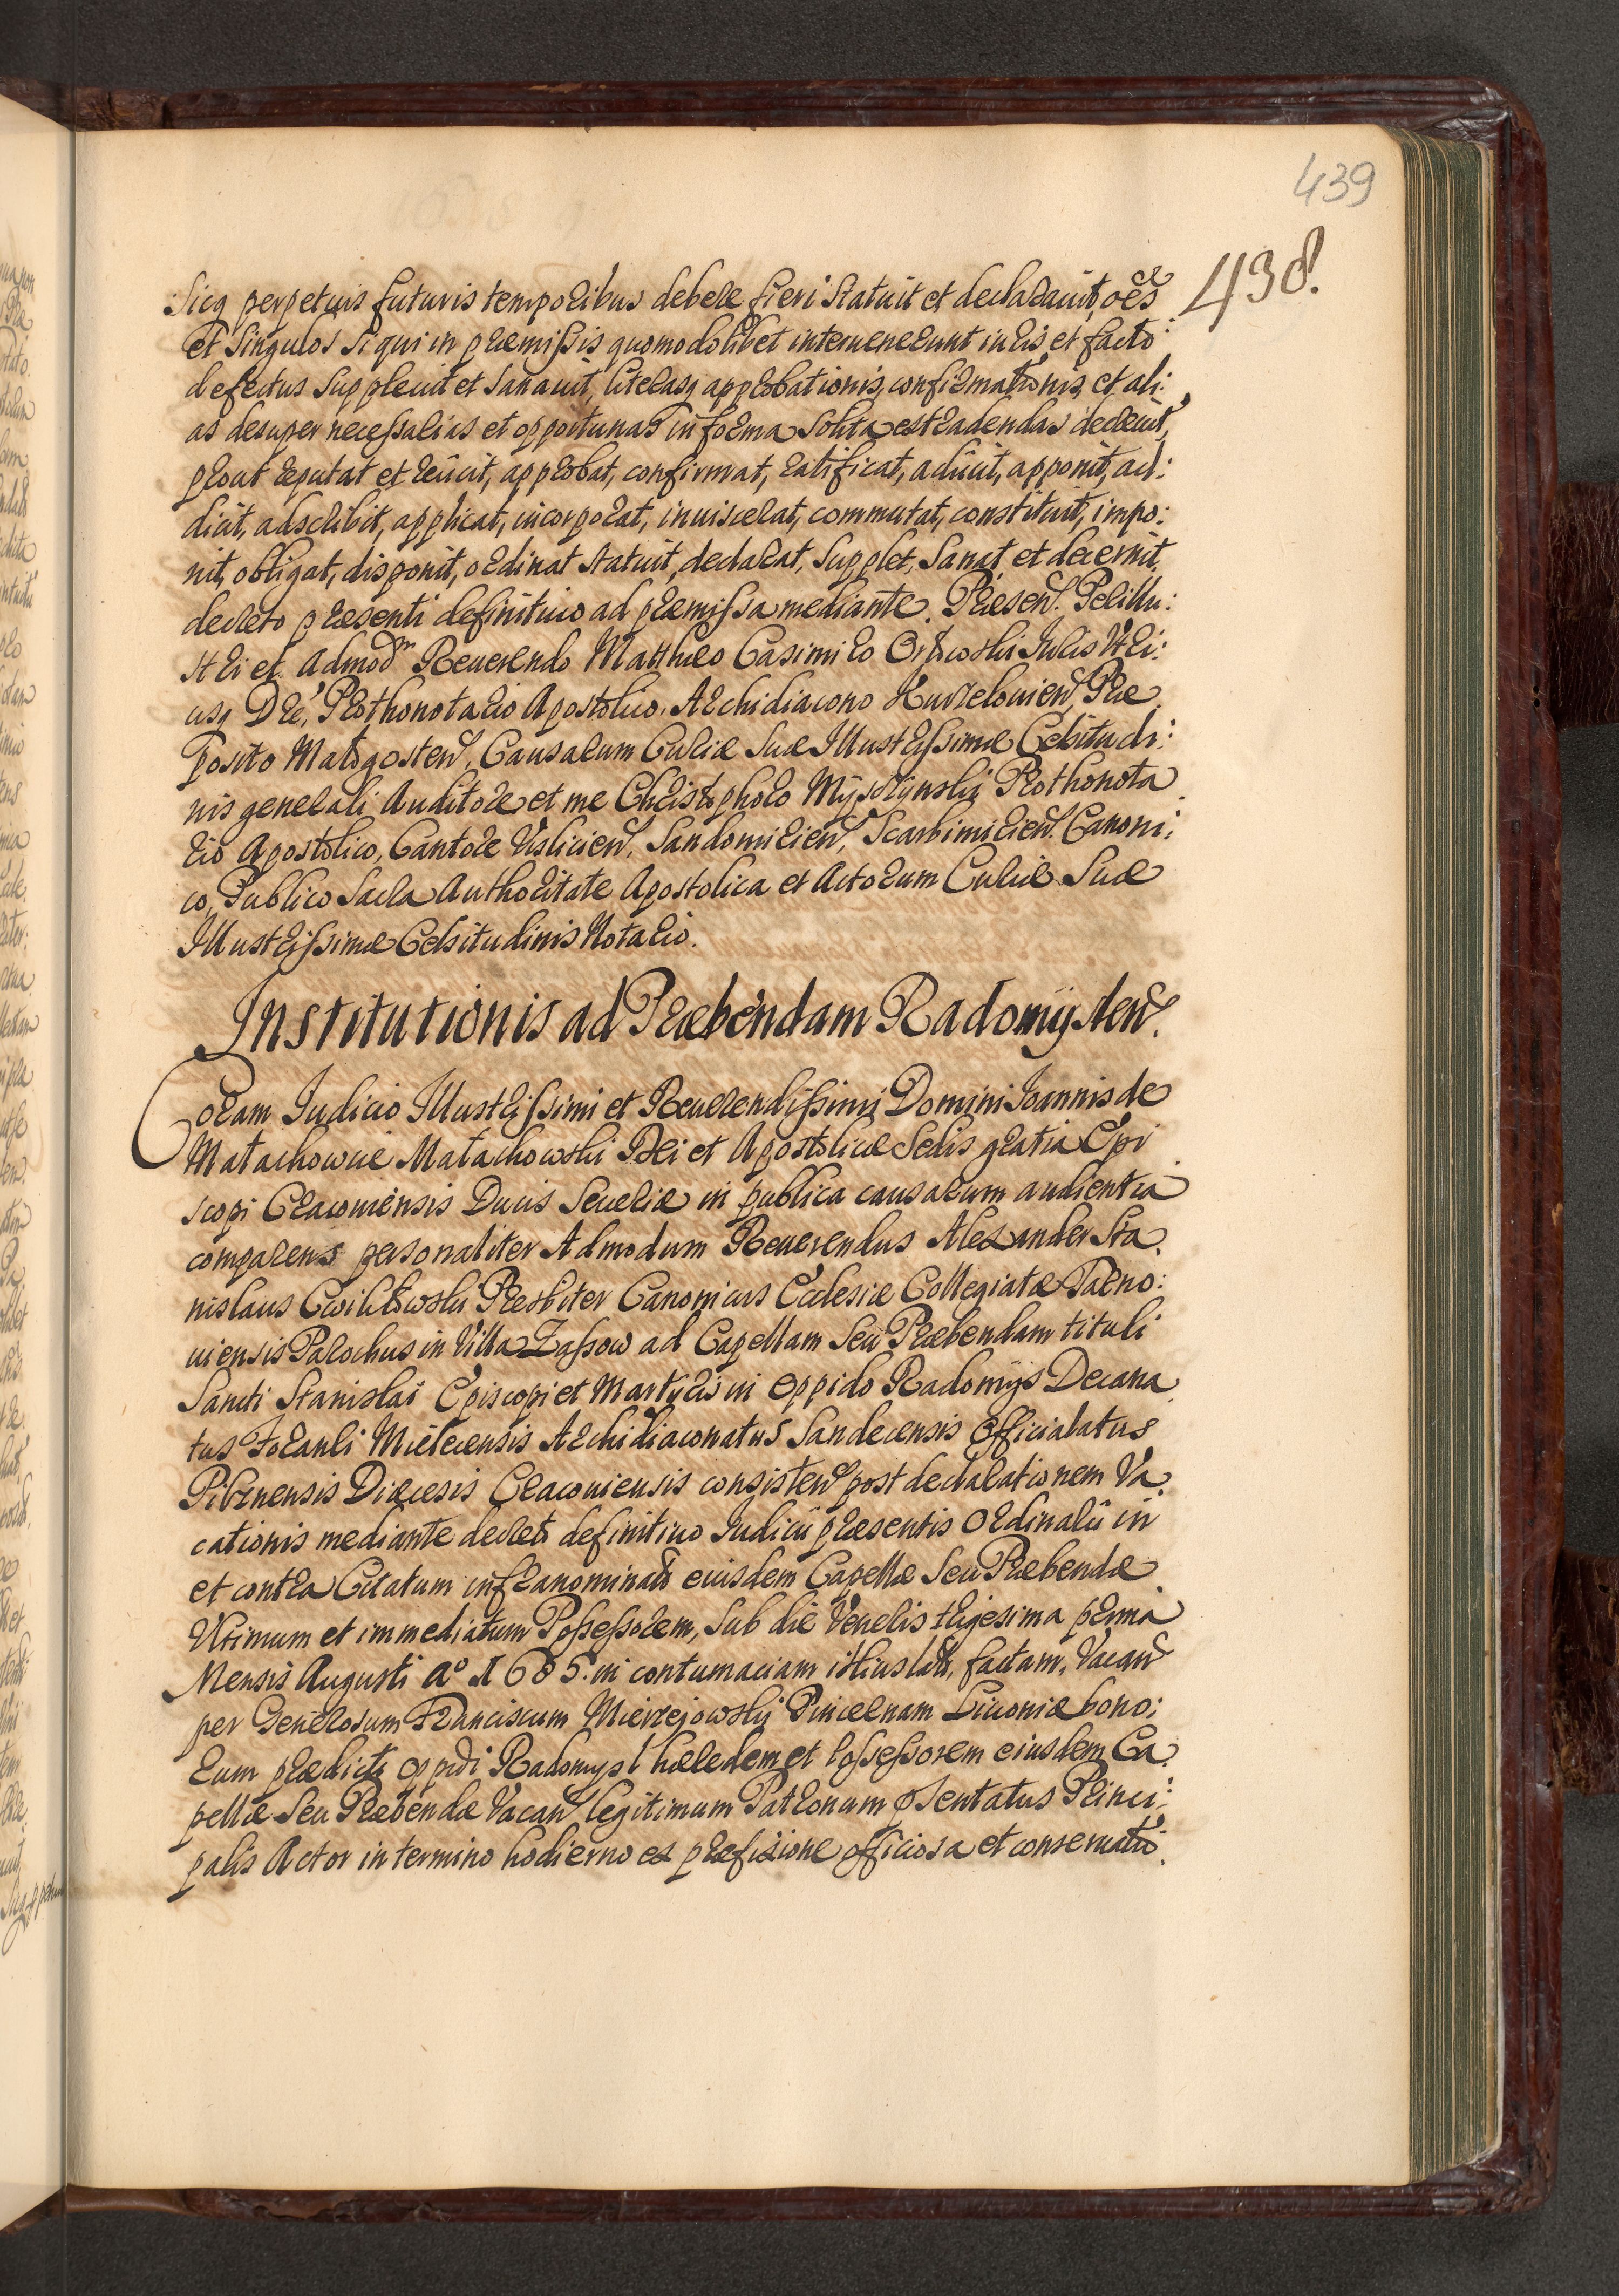 439
438.
Sicq perpetuis futuris temporibus debere fieri statuit et declarauit, oēs
et singulos si qui in præmissis quomodolibet interuenerunt iuris et facto
defectus suppleuit et sanauit, literasq approbationis, confirmationis, et ali:
as desuper necessarias et opportunas in forma solita extradendas decreuit,
prout reputat et reiicit, approbat, confirmat, ratificat, adiicit, apponit, ad:
dicit, adscribit, applicat, incorporat, inuiscerat, commutat, constituit, impo:
nit, obligat, disponit, ordinat statuit, declarat, supplet, sanat et decernit,
decreto præsenti definitiuo ad præmissa mediante. Præsen. Perillu:
stri et Admodm Reuerendo Matthæo Casimiro Juris Utri:
usq Dre, Prothonotario Apostolico, Archidiacono Kurzelouien, Præ
posito Małogosten, Causarum Curiæ Suæ Illustrissimæ Celsitudi:
nis generali Auditore et me Christophoro Prothonota
rio Apostolico, Cantore Vislicien, Sandomirien, Scarbimirien. Canoni:
co, Publico Sacra Authoritate Apostolica et Actorum Curiæ Suæ
Illustrissimæ Celsitudinis Notario.
Institutionis ad Præbendam Radomÿsten.
Coram Iudicio Illustrissimi et Reuerendissimi Domini Ioannis de
Małachowice Małachowski Dei et Apostolicæ Sedis gratia Epi
scopi Cracouiensis Ducis Seueriæ in publica causarum audientia
comparens personaliter Admodum Reuerendus Alexander Sta
nislaus Cwiklowski Presbiter Canonicus Ecclesiæ Collegiatæ Tarno:
uiensis Parochus in Villa Zassow ad Capellam seu Præbendam tituli
Sancti Stanislai Episcopi et Martyris in Oppido Radomÿs Decana
tus Foranli Mielecensis Archidiaconatus Sandecensis Officialatus
Pilznensis Diæcesis Cracouiensis consisten post declarationem Va
cationis mediante decreto definitiuo Iudicii præsentis Ordinarii in
et contra Citatum infranominatū eiusdem Capellæ seu Præbendæ
Ultimum et immediatum Possessorem, sub die Veneris trigesima prima
Mensis Augusti Ao 1685. in contumaciam istius latū, factam, Vacan
per Generosum Franciscum Mierzejowski Pincernam Liuoniæ bono:
rum prædicti oppidi Radomysl hæredem et possessorem eiusdem Ca
pellæ seu Præbendæ Vacan legitimum Patronum psentatus Princi:
palis Actor in termino hodierno ex præfixione officiosa et conseruatio